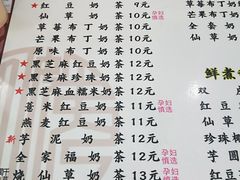 ★红豆奶茶 9元
仙草奶茶 10元 孕妇慎选
草莓布丁奶茶 10元
芒果布丁奶茶 10元
原味布丁奶茶 10元
★黑芝麻红豆奶茶 12元
★黑芝麻珍珠奶茶 12元
★黑芝麻血糯米奶茶 12元
薏米红豆奶茶 11元 孕妇慎选
燕麦红豆奶茶 11元
新 芋泥奶茶 12元
全家福奶茶 12元 孕妇慎选
烧仙草奶茶 13元 孕妇慎选
草莓
芒果
全套
仙草
鲜煮
双
红豆
珍珠
芋圆
红